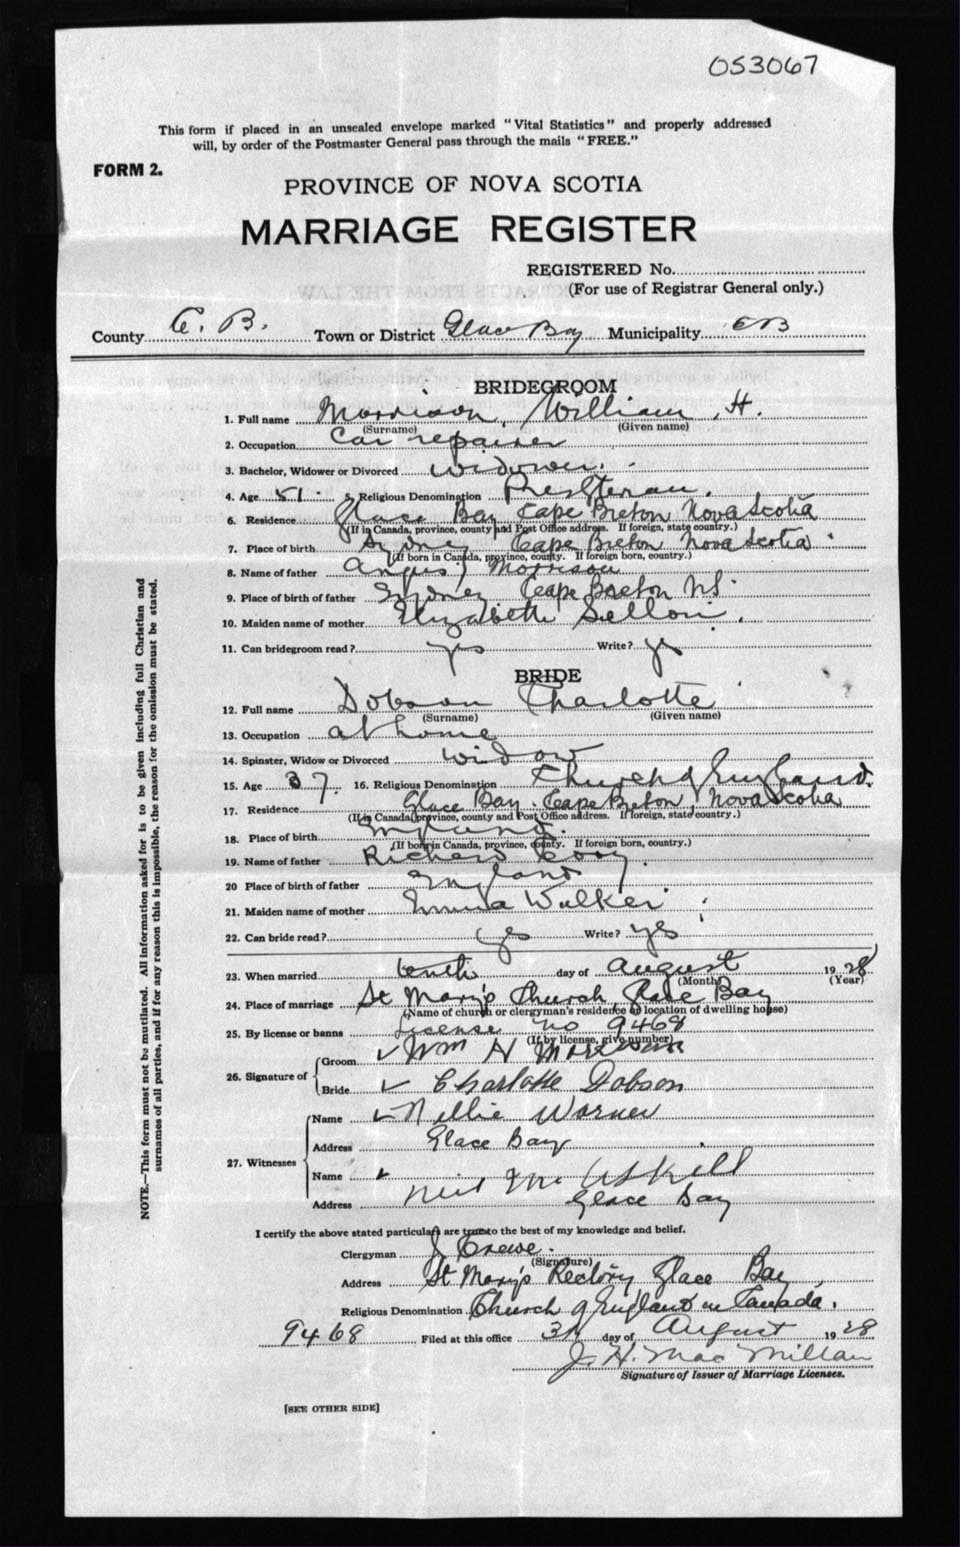 053067
This form if placed in an unsealed envelope marked "Vital Statistics" and properly addressed
will, by order of the Postmaster General pass through the mails "FREE."
FORM 2.
PROVINCE OF NOVA SCOTIA
MARRIAGE REGISTER
REGISTERED No.
(For use of Registrar General only.)
County C. B. Town or District Glace Bay Municipality CB
BRIDEGROOM
1. Full name Morrison, William H.
(Surname) (Given name)
2. Occupation Car repairer
3. Bachelor, Widower or Divorced widower.
4. Age 51. 5. Religious Denomination Presbterian.
6. Residence Glace Bay Cape Breton Nova Scotia
(If in Canada, province, county and Post Office address. If foreign, state country.)
7. Place of birth Sydney Cape Breton Nova Scotia
(If born in Canada, province, county. If foreign born, country.)
8. Name of father Angus Morrison
9. Place of birth of father Sydney Cape Breton NS.
10. Maiden name of mother Elizabeth
11. Can bridegroom read? yes Write? yes
BRIDE
12. Full name Dobson Charlotte
(Surname) (Given name)
13. Occupation at home
14. Spinster, Widow or Divorced widow
15. Age 37. 16. Religious Denomination Church of England.
17. Residence Glace Bay. Cape Breton, Nova Scotia
(If in Canada, province, county and Post Office address. If foreign, state country.)
18. Place of birth England.
(If born in Canada, province, county. If foreign born, country.)
19. Name of father Richard
20 Place of birth of father England
21. Maiden name of mother Emma Walker
22. Can bride read? yes Write? yes
23. When married tenth day of August 1928
(Month) (Year)
24. Place of marriage St Mary's Church, Glace Bay
(Name of church or clergyman's residence or location of dwelling house)
25. By license or banns License no 9468
(If by license, give number)
26. Signature of Groom Wm H Morrison
Bride Charlotte Dobson
27. Witnesses Name Nellie Warner
Address Glace Bay
Name Neil McAskill
Address Glace Bay
I certify the above stated particulars are true to the best of my knowledge and belief.
Clergyman J Crewe.
(Signature)
Address St Mary's Rectory Glace Bay
Religious Denomination Church of England in Canada.
9468 Filed at this office day of August 1928
J. H. MacMillan
Signature of Issuer of Marriage Licenses.
[SEE OTHER SIDE]
NOTE.—This form must not be mutilated. All information asked for is to be given including full Christian and
surnames of all parties, and if for any reason this is impossible, the reason for the omission must be stated.